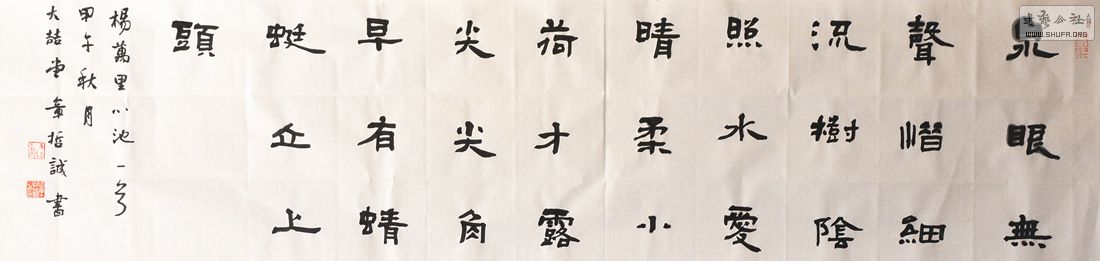 泉眼無
聲惜細
流樹陰
照水愛
晴柔小
荷才露
尖尖角
早有蜻
蜓立上
頭
楊萬里小池一首
甲午秋月
大喆堂章哲誠書
書藝公社
WWW.SHUFA.ORG